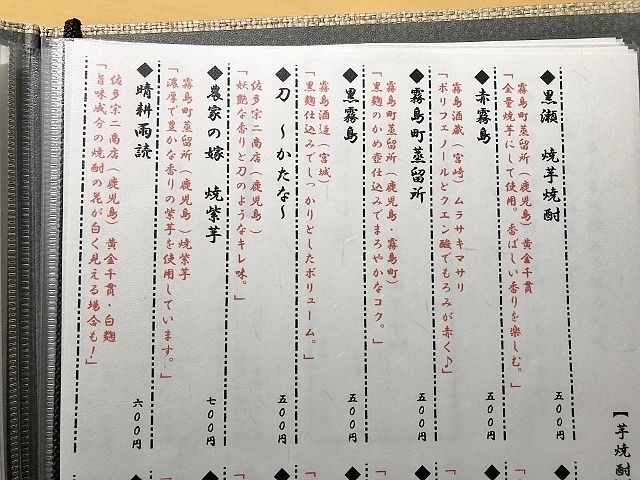 【芋焼酎
◆黒瀬 焼芋焼酎 五００円
鹿児島酒造(鹿児島)黄金千貫
「全量焼芋にして使用。香ばしい香りを楽しむ。」
◆赤霧島 五００円
霧島酒蔵(宮崎)ムラサキマサリ
「ポリフェノールとクエン酸でもろみが赤く♪」
◆霧島町蒸留所 五００円
霧島町蒸留所(鹿児島・霧島町)
「黒麹のかめ壺仕込みでまろやかなコク。」
◆黒霧島 五００円
霧島酒造(宮城)
「黒麹仕込みでしっかりとしたボリューム。」
◆刀 〜かたな〜 五００円
佐多宗二商店(鹿児島)
「妖艶な香りと刀のようなキレ味。」
◆農家の嫁 焼紫芋 七００円
霧島町蒸留所(鹿児島)焼紫芋
「濃厚で豊かな香りの紫芋を使用しています。」
◆晴耕雨読 六００円
佐多宗二商店(鹿児島)黄金千貫・白麹
「旨味成分の焼酎の花が白く見える場合も!」